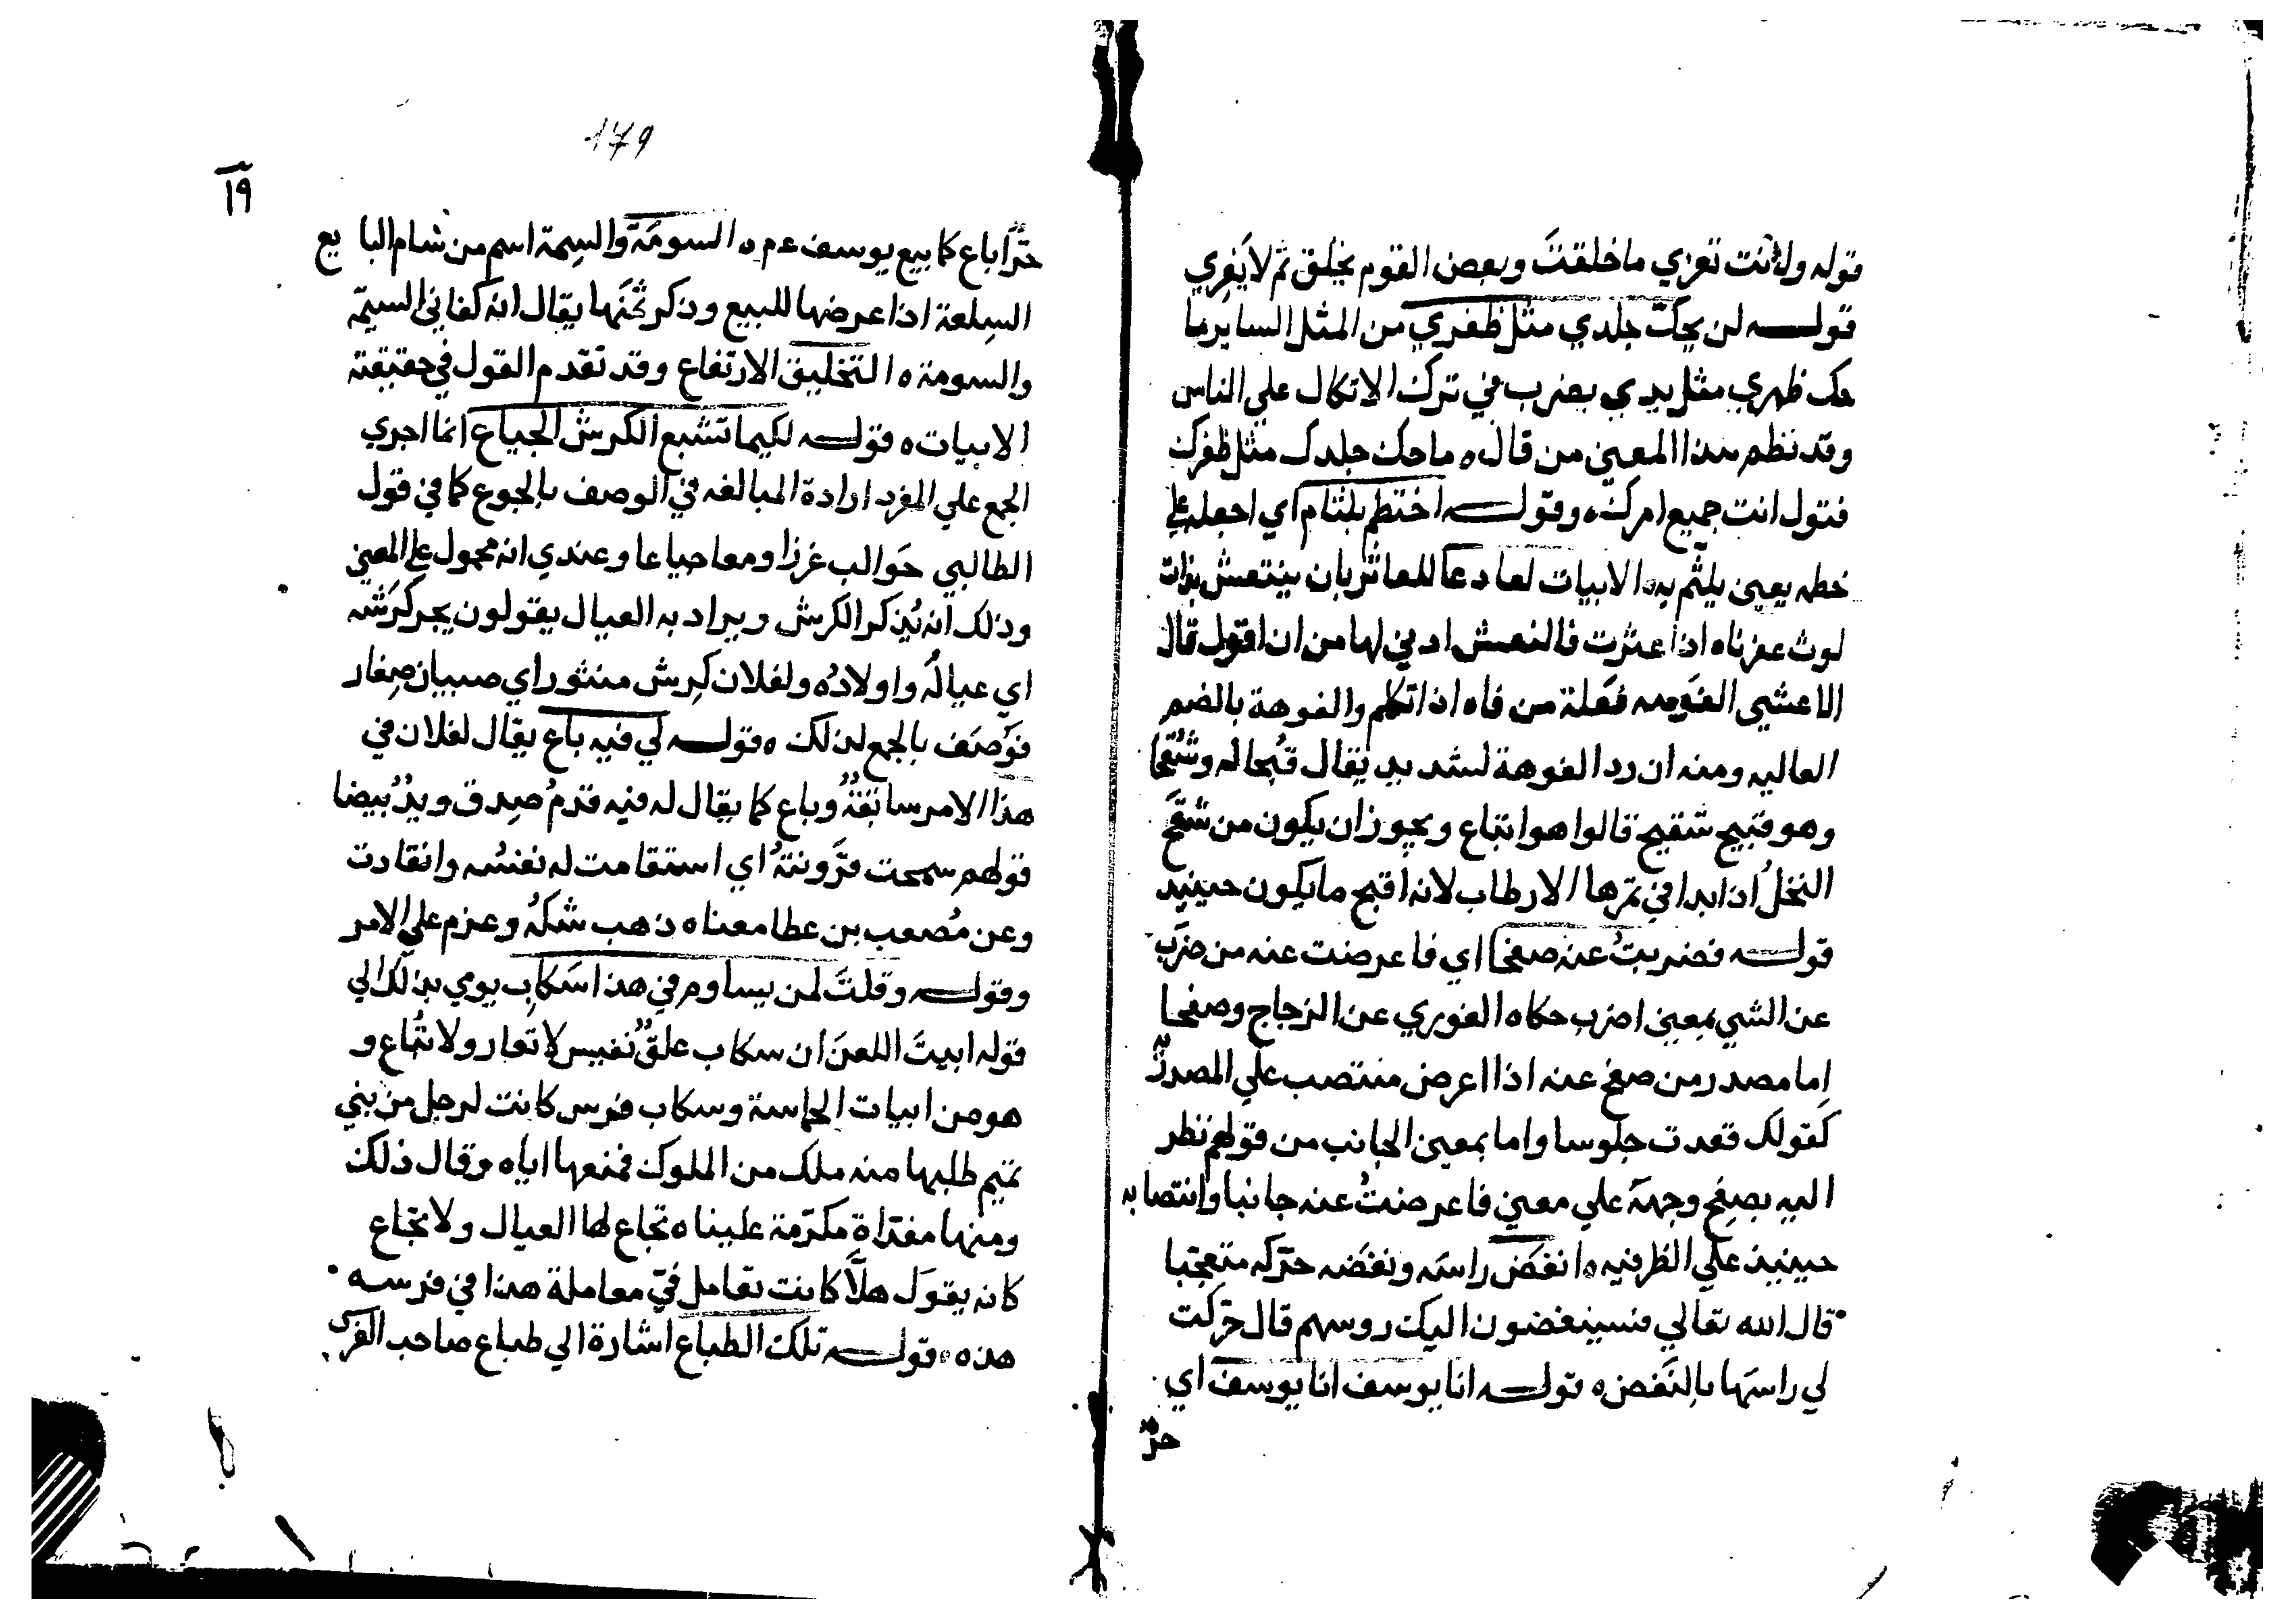 قوله ولأنت تفري ما خلقتَ وبعض القوم يخلق ثم لا يَفري
قولــه لن يحكّ جلدي مثل ظفري من المثل الساير ما
حك ظهري مثل يدي يضرب في ترك الاتكال علي الناس
وقد نظم هذا المعني من قال ه ما حك جلدك مثل ظفرك
فتول انت جميع امرك ه وقولــه اختطم بلثام اي اجعله علي
خطمه يعني يلثم به ه الابيات لعا دعا للعاثر بان ينتعش بذات
لوث عفرناه اذا عثرت فالنعش ادني لها من ان اقول قال
الاعشي الفوهه فعلة من فاه اذا تكلم والفوهة بالضم
العاليه ومنه ان رد الفوهة لشديد يقال قُبحا له وشُقحا
وهو قبيح شقيح قالوا هو اتباع ويجوز ان يكون من شقّح
النخلُ اذا بدا في تمرها الارطاب لانه اقبح ما يكون حينيذ
قولــه فضربتُ عنه صفحا اي فاعرضت عنه من ضرَب
عن الشي بمعني اضرب حكاه الغوري عن الزجاج وصفحا
إما مصدر من صفح عنه اذا اعرض منتصب علي المصدريّه
كقولك قعدت جلوسا واما بمعني الجانب من قولهم نظر
اليه بصفح وجهه علي معني فاعرضتُ عنه جانبا وانتصابه
حينيذ علي الظرفيه ه انغض راسه ونغضه حرّكه متعجبا
قال الله تعالي فسينغضون اليك روسهم قال حرّكت
لي راسها بالنَغض ه قولــه انا يوسف انا يوسف اي
حرّ
179
19
حرّا باع كما بيع يوسف عم ه السومَة والسِمة اسم من سام البايع
السِلعة اذا عرضها للبيع وذكر ثمنَها يقال انه لغالي السيمة
والسومة ه التخليق الارتفاع وقد تقدم القول في حقيقته
الابيات ه قولــه لكيما تشبع الكرش الجياع انما اجري
الجمع علي المفرد ارادة المبالغه في الوصف بالجوع كما في قول
الطالبي حَوالب غرزا ومعا جياعا وعندي انه محمول علي المعني
وذلك انه يُذكر الكرش ويراد به العيال يقولون يجر كرَشه
اي عيالَه واولادُه ولفلان كرِش منثور اي صبيان صِغار
فوُصَف بالجمع لذلك ه قولــه لي فيه باع يقال لفلان في
هذا الامر سابقةٌ وباع كما يقال له فيه قدمُ صِدق ويدٌ بيضا
قولهم سمحت قرونتهُ اي استقامت له نفسُه وانقادت
وعن مُصعب بن عطا معناه ذهب شكهُ وعزم علي الامر
وقولــه وقلتَ لمن يساوم في هذا سَكابِ يومي بذلك الي
قوله ابيتَ اللعنَ ان سكاب علقٌ نفيس لا تعار ولا تُباع و
هو من ابيات الحماسة وسكاب فرس كانت لرجل من بني
تميم طلبها منه ملك من الملوك فمنعها اياه وقال ذلك
ومنها مفدّاة مكرّمة علينا ه تجاع لها العيال ولا تجاع
كانه يقول هلّا كانت تعامل فيّ معاملة هذا في فرسه
هذه ه قولــه تلك الطباع اشارة الي طباع صاحب الفرس